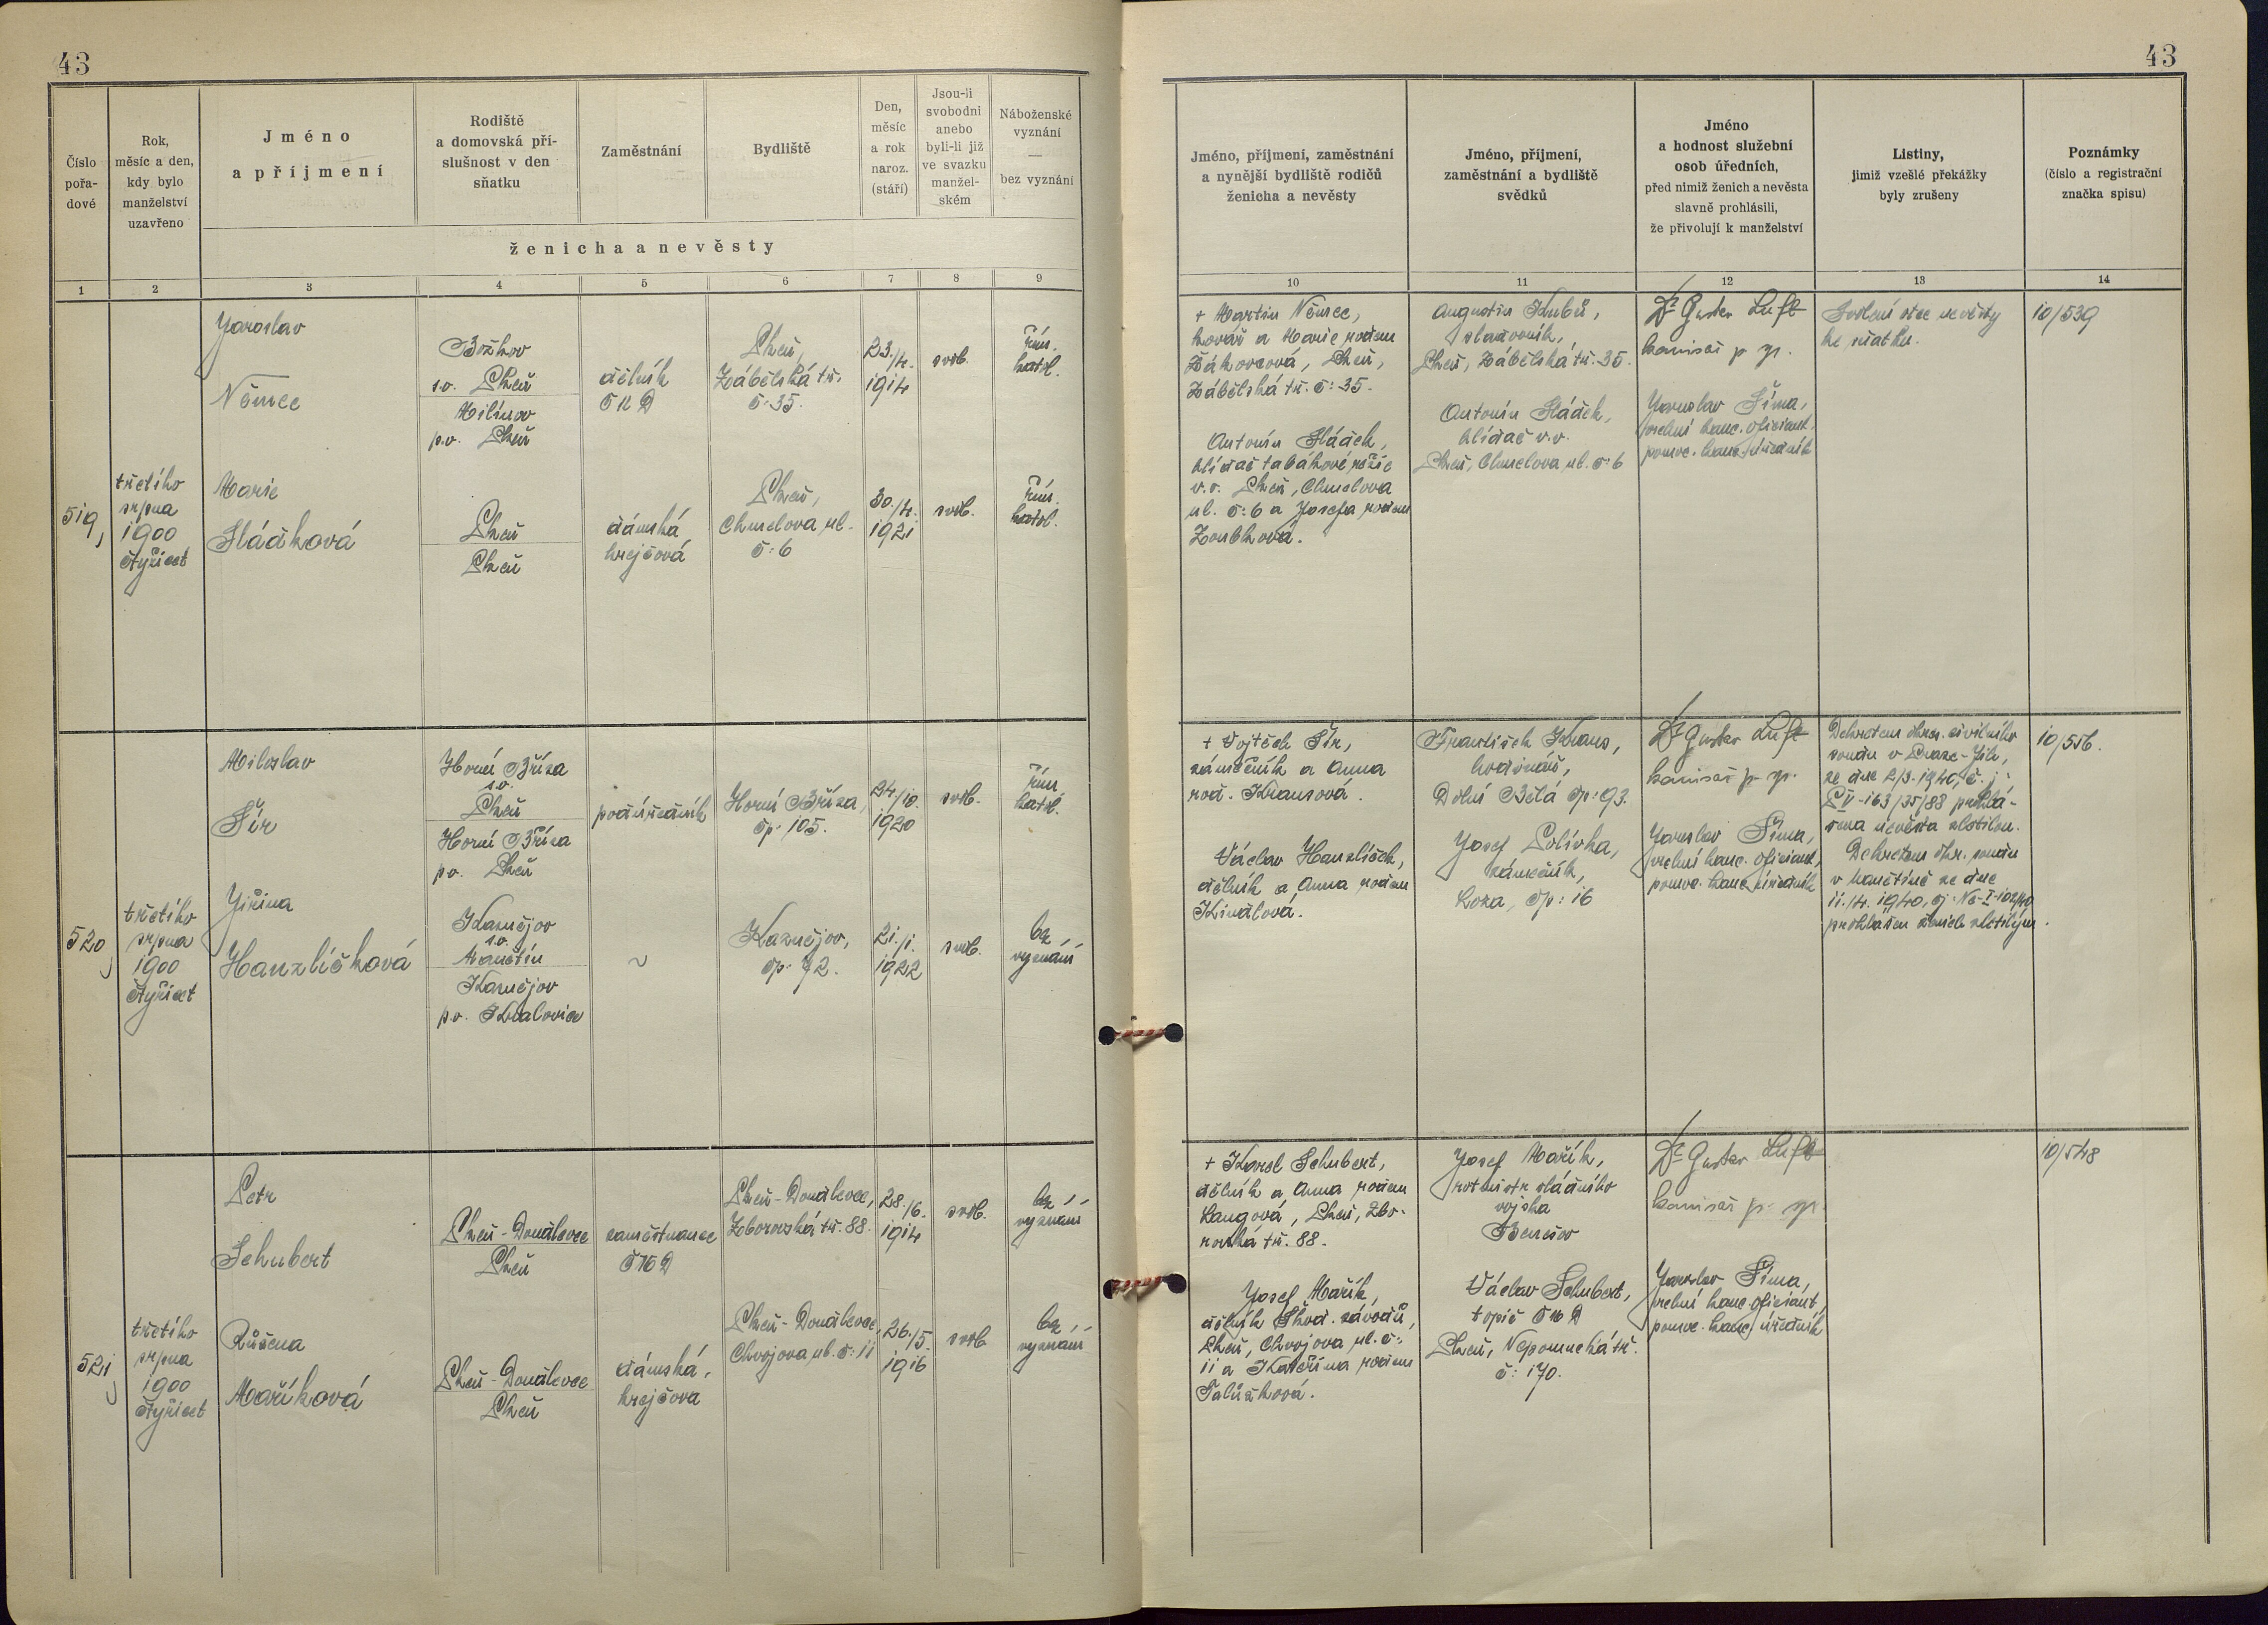 43
43
Číslo
pořa-
dové
Rok,
měsíc a den,
kdy bylo
manželství
uzavřeno
Jméno
a příjmení
Rodiště
a domovská pří-
slušnost v den
sňatku
Zaměstnání
Bydliště
Den,
měsíc
a rok
naroz.
(stáří)
Jsou-li
svobodni
anebo
byli-li již
ve svazku
manžel-
ském
Náboženské
vyznání
—
bez vyznání
ženicha a nevěsty
Jméno, příjmení, zaměstnání
a nynější bydliště rodičů
ženicha a nevěsty
Jméno, příjmení,
zaměstnání a bydliště
svědků
Jméno
a hodnost služební
osob úředních,
před nimiž ženich a nevěsta
slavně prohlásili,
že přivolují k manželství
Listiny,
jimiž vzešlé překážky
byly zrušeny
Poznámky
(číslo a registrační
značka spisu)
1 2 3 4 5 6 7 8 9 10 11 12 13 14
519,
třetího
srpna
1900
čtyřicet
Jaroslav
Němec
Božkov
s.o. Plzeň
Milínov
p.o. Plzeň
dělník
ČKD
Plzeň,
Zábělská tř.
č: 35.
23./4.
1914
svob.
řím.
katol.
Marie
Sládková
Plzeň
Plzeň
dámská
krejčová
Plzeň,
Chmelova ul.
č: 6
30./4.
1921
svob.
řím.
katol.
+ Martin Němec,
kovář a Marie rodem
Žákovcová, Plzeň,
Zábělská tř. č: 35.
Antonín Sládek,
hlídač tabákové režie
v.v. Plzeň, Chmelova
ul. č: 6 a Josefa rodem
Zoubková.
Augustin Kubů,
sladovník,
Plzeň, Zábělská tř. 35.
Antonín Sládek,
hlídač v.v.
Plzeň, Chmelova ul. č: 6
Dr Gustav Luft
komisař p. sp.
Jaroslav Šíma,
vrchní kanc. oficiant,
pomoc. kanc. úředník
Svolení otce nevěsty
ke sňatku.
10/539
520,
třetího
srpna
1900
čtyřicet
Miloslav
Šír
Horní Bříza
s.o.
Plzeň
Horní Bříza
p.o. Plzeň
podúředník
Horní Bříza,
čp: 105.
24./10.
1920
svob.
řím.
katol.
Jiřina
Hanzlíčková
Kaznějov
s.o.
Manětín
Kaznějov
p.o. Kralovice
~
Kaznějov,
čp: 72.
21./1.
1922
svob.
bez
vyznání
+ Vojtěch Šír,
zámečník a Anna
rod. Krausová.
Václav Hanzlíček,
dělník a Anna rodem
Kindlová.
František Kraus,
hodinář,
Dolní Bělá čp: 93.
Josef Polívka,
zámečník,
Loza, čp: 16
Dr Gustav Luft
komisař p. sp.
Jaroslav Šíma,
vrchní kanc. oficiant,
pomoc. kanc. úředník
Dekretem okres. civilního
soudu v Praze-Jih,
ze dne 2/3. 1940, č. j:
P V-163/35/83 prohlá-
šena nevěsta zletilou.
Dekretem okr. soudu
v Manětíně ze dne
11./4. 1940,
prohlášen ženich zletilým.
10/556.
521,
třetího
srpna
1900
čtyřicet
Petr
Schubert
Plzeň-Doudlevce
Plzeň
zaměstnanec
ČKD
Plzeň-Doudlevce,
Zborovská tř. 88.
28./6.
1914
svob.
bez
vyznání
Růžena
Maříková
Plzeň-Doudlevce
Plzeň
dámská
krejčová
Plzeň-Doudlevce,
Chvojova ul. č: 11
26./5.
1916
svob
bez
vyznání
+ Karel Schubert,
dělník a Anna rodem
Langová, Plzeň, Zbo-
rovská tř. 88.
Josef Mařík,
dělník Škod. závodů,
Plzeň, Chvojova ul. č:
11 a Kateřina rodem
Šalůšková.
Josef Mařík,
rotmistr vládního
vojska
Benešov
Václav Schubert,
topič ČKD
Plzeň, Nepomucká tř.
č: 170.
Dr Gustav Luft
komisař p. sp.
Jaroslav Šíma,
vrchní kanc. oficiant,
pomoc. kanc. úředník
10/548